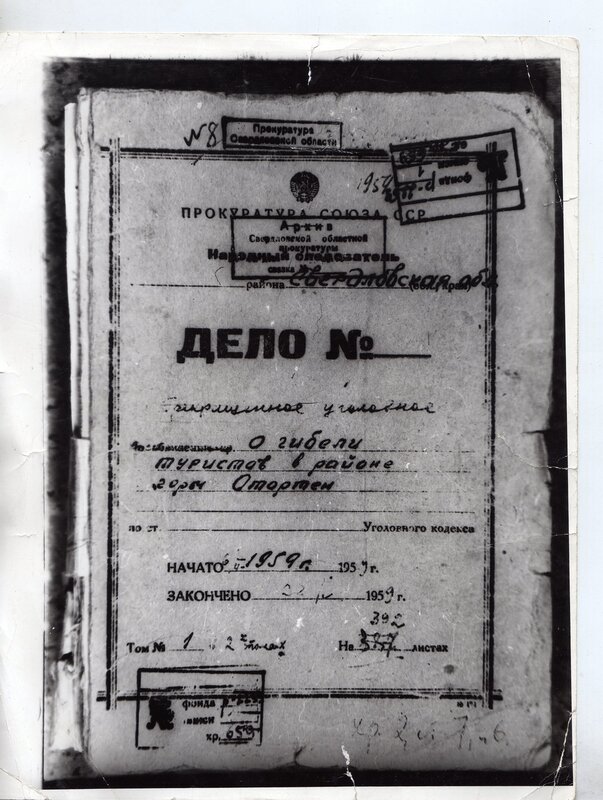 №8
Прокуратура
Свердловской области
фонда
описи 1
195
ПРОКУРАТУРА СОЮЗА ССР
Архив
Свердловской областной
прокуратуры
Народный следователь
связка №
района Свердловская обл.
ДЕЛО №
уголовное
О гибели
туристов в районе
горы Отортен
по ст. Уголовного кодекса
НАЧАТО 6 II-1959 г. 1959 г.
ЗАКОНЧЕНО 1959 г.
392
Том № 1 в 2х томах На листах
№ фонда
описи
хр. 659